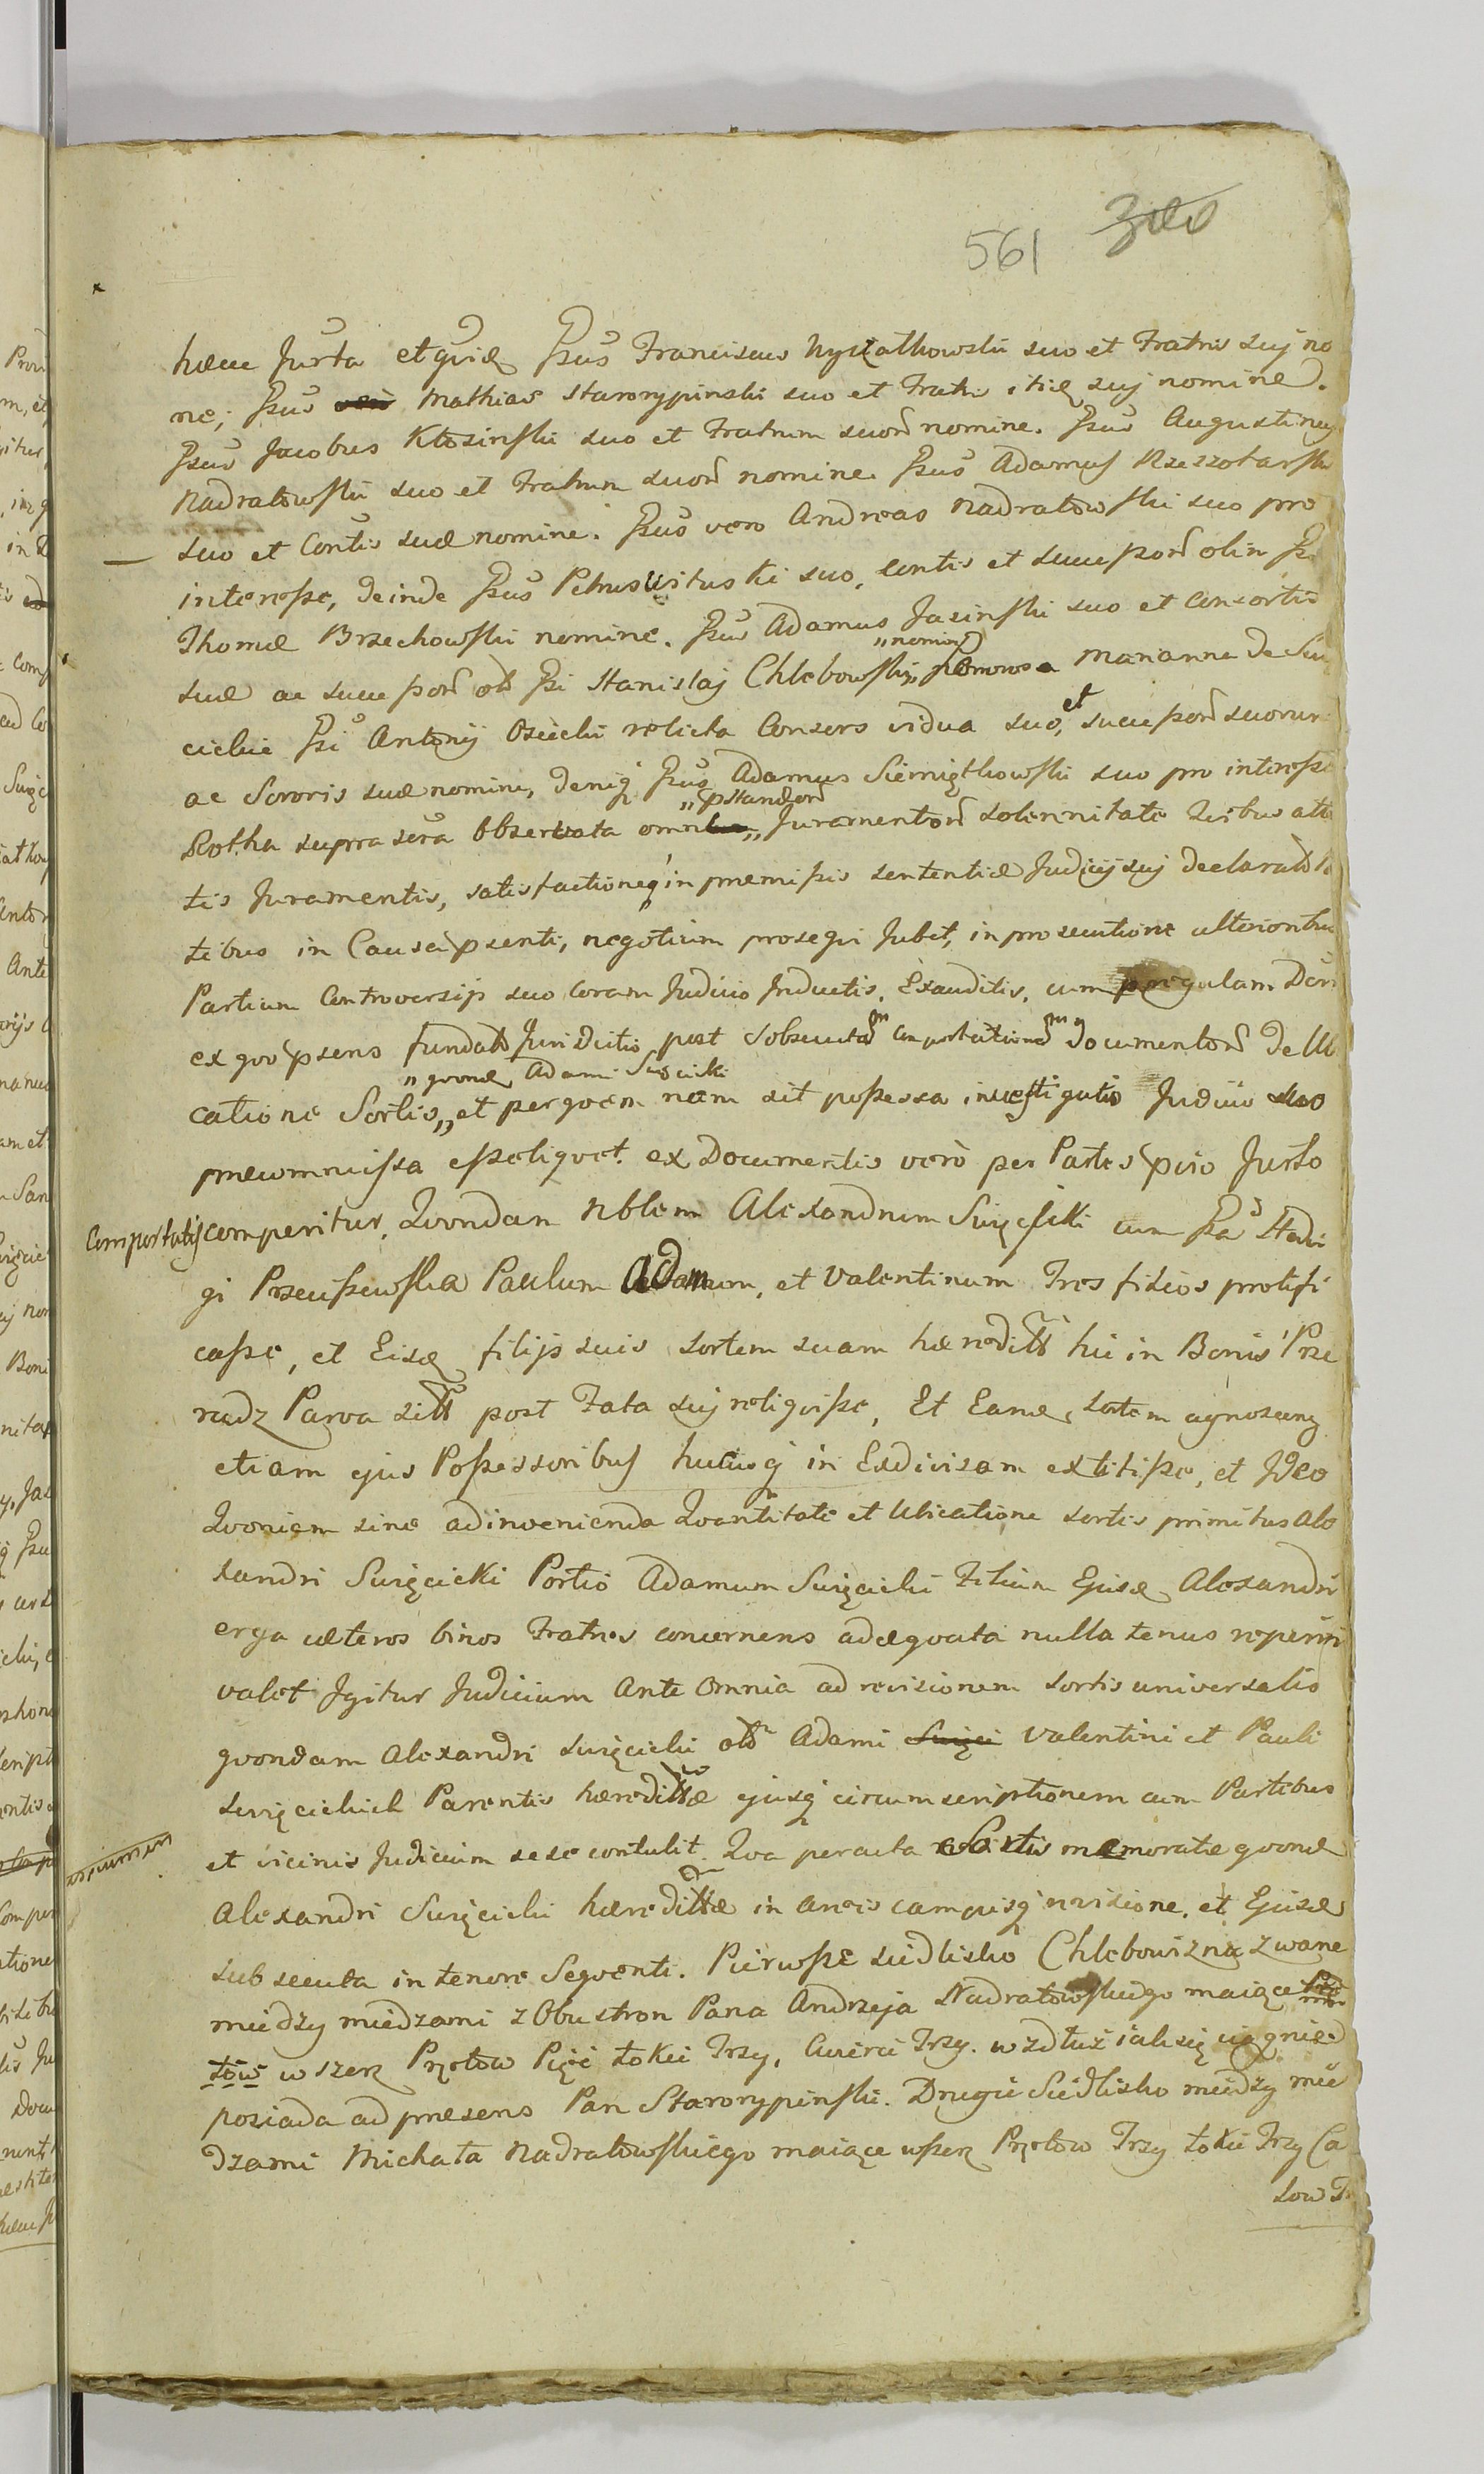 561
hæcce Jurta et quid Gsus Franciscus Nyszathowski suo et Fratris suj no
ne, Gsus Mathias Starorypinski suo et Fratris itid suj nomine.
Gsus Jacobus Kłosinski suo et Fratrum suor nomine. Gsus Augustinus
Nadratowski suo et Fratrum suor nomine. Gsus Adamus Rzeszotarski
suo et Contis suæ nomine. Gsus vero Andreas Nadratowski suo pro
interesse, deinde Gsus Petrus suo, contis et successor olim Gsi
Thomæ Brzechowski nomine. Gsus Adamus Jasinski suo et consortis
suæ ac successor olt Gsi Stanislaj Chlebowski „nomine Marianna de
cickie Gsi Antonij Osiecki relicta Consors vidua suo, et successor suorum
ac Sororis suæ nomine, deniq Gsus Adamus Siemiątkowski suo pro interesse
Rotha supra scra observata „pstandor Juramentor solennitate
tis Juramentis, satisfactioneq in premissis sententiæ Judicij suj declarat
tibus in Causa psenti, negotium prosequi Jubet, in prosecutione ulteriori
Partium Controversijs suo coram Judicio Inductis, Exauditis, cum regulam
ex quo psens fundata Juridictio post subsecutam comportationem documentor de Ubi
catione Sortis, „quond Adami Swięcicki et per quem nam sit possessa investigatio Judicio suo
præcommissa esse liquet. ex Documentis verò per Partes psio Jurto
Comportatis comperitur, Quondam Nblem Alexandrum Święcicki cum Gsa Hedvi
gi Przeciszewska Paulum Adamum, et Valentinum Tres filios prolifi
casse, et Eisd filijs suis sortem suam hæreditt hic in Bonis Prze
radz Parva sitt post Fata suj reliquisse, Et Eand sortem agnoscens
etiam ejus Possessoribus hucusq in Exdivisam extitisse, et Ideo
Quoniam sine adinvenienda Quantitate et Ubicatione sortis primitus Ale
xandri Święcicki Portio Adamum Święcicki Filium Ejusd Alexandri
erga cæteros binos Fratres concernens adæquata nulla tenus reperiri
valet Igitur Judicium Ante Omnia ad revisionem sortis universalis
quondam Alexandri Święcicki olt Adami Święci Valentini et Pauli
Święcickich Parentis hæredittæ ejusq circumscriptionem cum Partibus
et vicinis Judicium sese contulit. Qua peracta Sortis memoratæ quond
Alexandri Święcicki hæredittæ in areis campisq revisione, et Ejusd
subsecuta in tenore Sequenti. Pierwsze siedlisko Chlebowizna zwane
miedzy miedzami z Obu stron Pana Andrzeja Nadratowskiego maiące
tów wszerz Prętow Pięć łokci Trzy, Cwierci Trzy. wzdłuż iak się ciągnie
posiada ad præsens Pan Starorypinski. Drugie Siedlisko miedzy mie
dzami Michała Nadratowskiego maiące wszerz Prętow Trzy łokci Trzy Ca
low